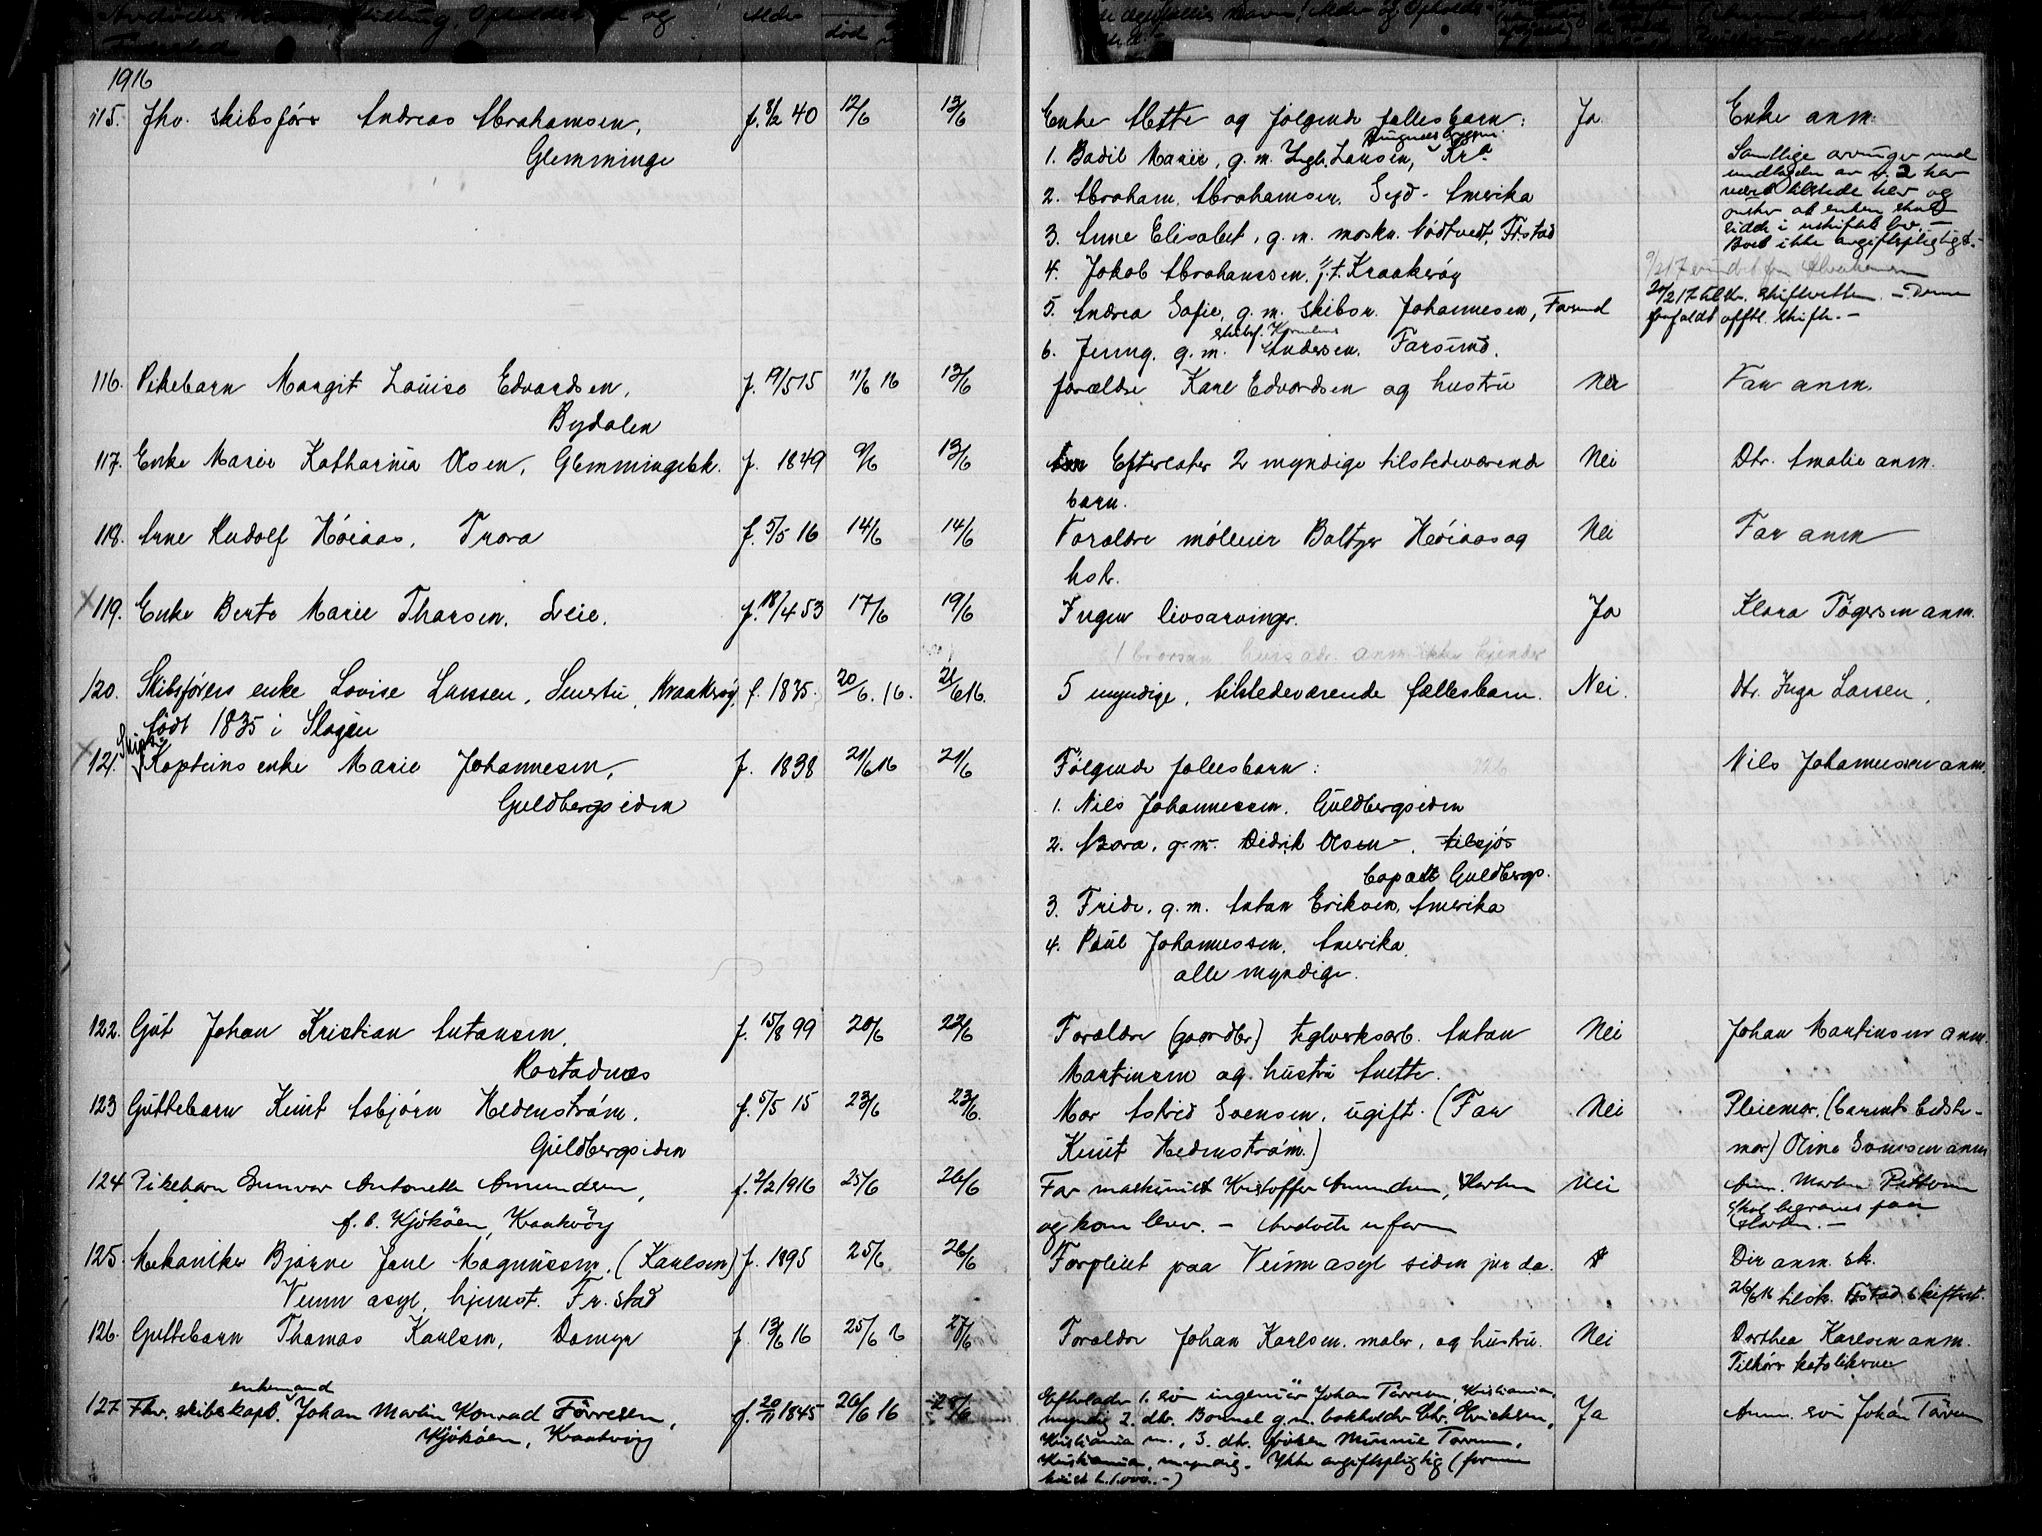 1916
115. Fhv. skibsfører Andreas Abrahamsen, f. 8/2 40 12/6 13/6 Enke Mette og følgende fællesbarn: Ja Enke anm.
Glemminge
1. Bodil Marie, g. m. Ingb. Larsen, Kra
2. Abraham Abrahamsen, Syd-Amerika
3. Anne Elisabet, g. m. mask. Nødtvedt, Frstad
4. Jakob Abrahamsen, Kraakerøy
5. Andrea Sofie, g. m. skibsr. Johannesen, Farsund
6. Jenny, g. m. Andersen, Farsund.
Samtlige arvinger med
undtagelse av nr. 2 har
været tilstede her og
ønsker at enken skal
sidde i uskiftet bo. -
Boet ikke avgiftspligtigt. -
116. Pikebarn Margit Louise Edvardsen, f. 19/5 15 11/6 16 13/6 forældre Karl Edvardsen og hustru Nei Far anm.
Bydalen
117. Enke Marie Katharina Olsen, Glemmingebk. f. 1849 9/6 13/6 Efterlater 2 myndige tilstedeværende Nei Dtr. Amalie anm.
barn.
118. Arne Rudolf Høiaas, Trara f. 5/5 16 14/6 14/6 Forældre møller Baltzer Høiaas og Nei Far anm
hstr.
119. Enke Berte Marie Thorsen, Leie. f. 18/4 53 17/6 19/6 Ingen livsarvinger. Ja Klara Tøgersen anm.
120. Skibsførers enke Lovise Larssen, Kraakerøy, f. 1835. 20/6. 16. 21/6 16. 5 myndige, tilstedeværende fællesbarn. Nei. Dtr. Inga Larsen,
født 1835 i Slagen
121. Kapteins enke Marie Johannesen, f. 1838 21/6 16 21/6 Følgende fællesbarn: Nils Johannessen anm.
Guldbergsiden
1. Nils Johannessen, Guldbergsiden
2. Azora, g. m. Didrik Olsen, tilsjøs
Guldbergs.
3. Frida, g. m. Anton Eriksen, Amerika
4. Paul Johannessen, Amerika
alle myndige.
122. Gut Johan Kristian Antonsen, f. 15/8 99 20/6 22/6 Forældre (gaardbr) teglverksarb. Anton Nei Johan Martinsen anm.
Rostadnes
Martinsen og hustru Anette.
123 Guttebarn Knut Asbjørn Hedenstrøm, f. 5/5 15 23/6 23/6. Mor Astrid Svensen, ugift. (Far Nei Pleiemor, (barnets bedste-
Guldbergsiden
Knut Hedenstrøm.)
mor) Olina Svensen anm
124 Pikebarn Gunvor Antonette Amundsen, f. 2/2 1916 25/6 26/6 Far maskinist Kristoffer Amundsen, Horten Nei Anm. Martin Pettersen
f. t. Kjøkøen, Kraakerøy
og kone lever. - Avdøde u farm
Skal begraves paa
Horten. -
125. Mekaniker Bjarne Paul Magnussen, (Karlsen) f. 1895 25/6 26/6 Forpleiet paa Veum asyl siden Dir anm. sk.
Veum asyl, hjemst. Fr.stad
26/6 16 tilsk. Frstad skifteret.
126. Guttebarn Thomas Karlsen, Damyr f. 13/6 16 25/6 16 27/6 Forældre Johan Karlsen, maler, og hustru. Nei Dorthea Karlsen anm.
Tilhører katolikerne
enkemand
127 Fhv. skibskapt. Johan Martin Konrad Tørresen, f. 20/11 1845 26/6 16 28/6 Efterlader 1. søn ingeniør Johan Tørresen, Kristiania, Ja Anm. søn Johan Tørresen
Kjøkøen, Kraakerøy
myndig 2. dtr. g. m. bokholder Chr.
Kristiania m., 3. dtr. frøken Minnie Tørresen,
Kristiania, myndig. Ikke avgiftspligtig (formue